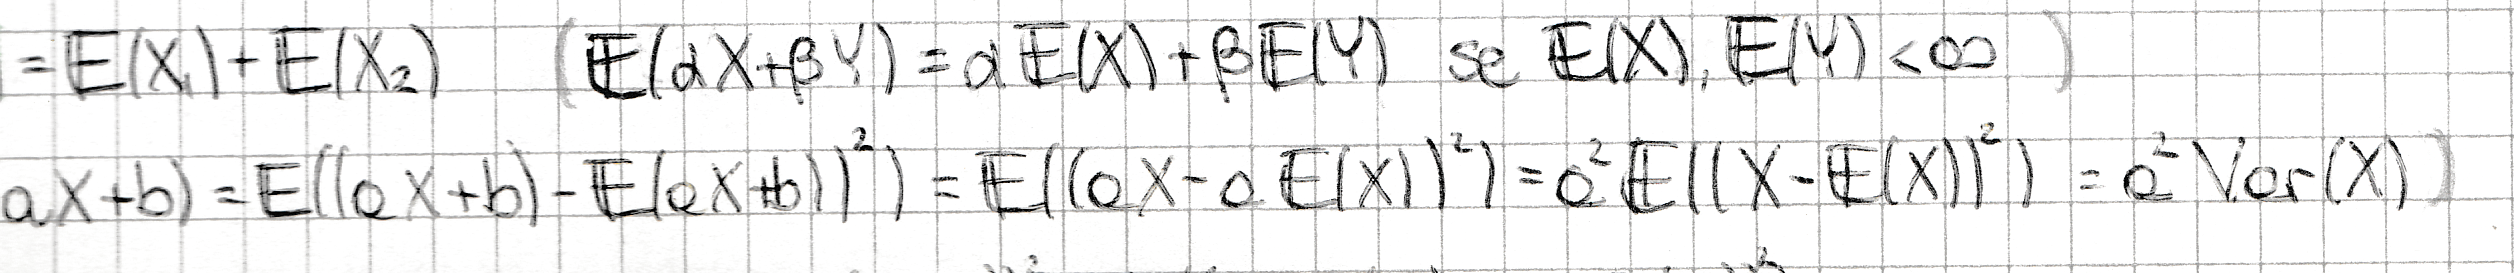 = E(X₁) + E(X₂) (E(αX+βY) = αE(X) + βE(Y) se E(X), E(Y) < ∞)
aX+b) = E(((aX+b) - E(aX+b))²) = E((aX - aE(X))²) = a²E((X - E(X))²) = a² Var(X))